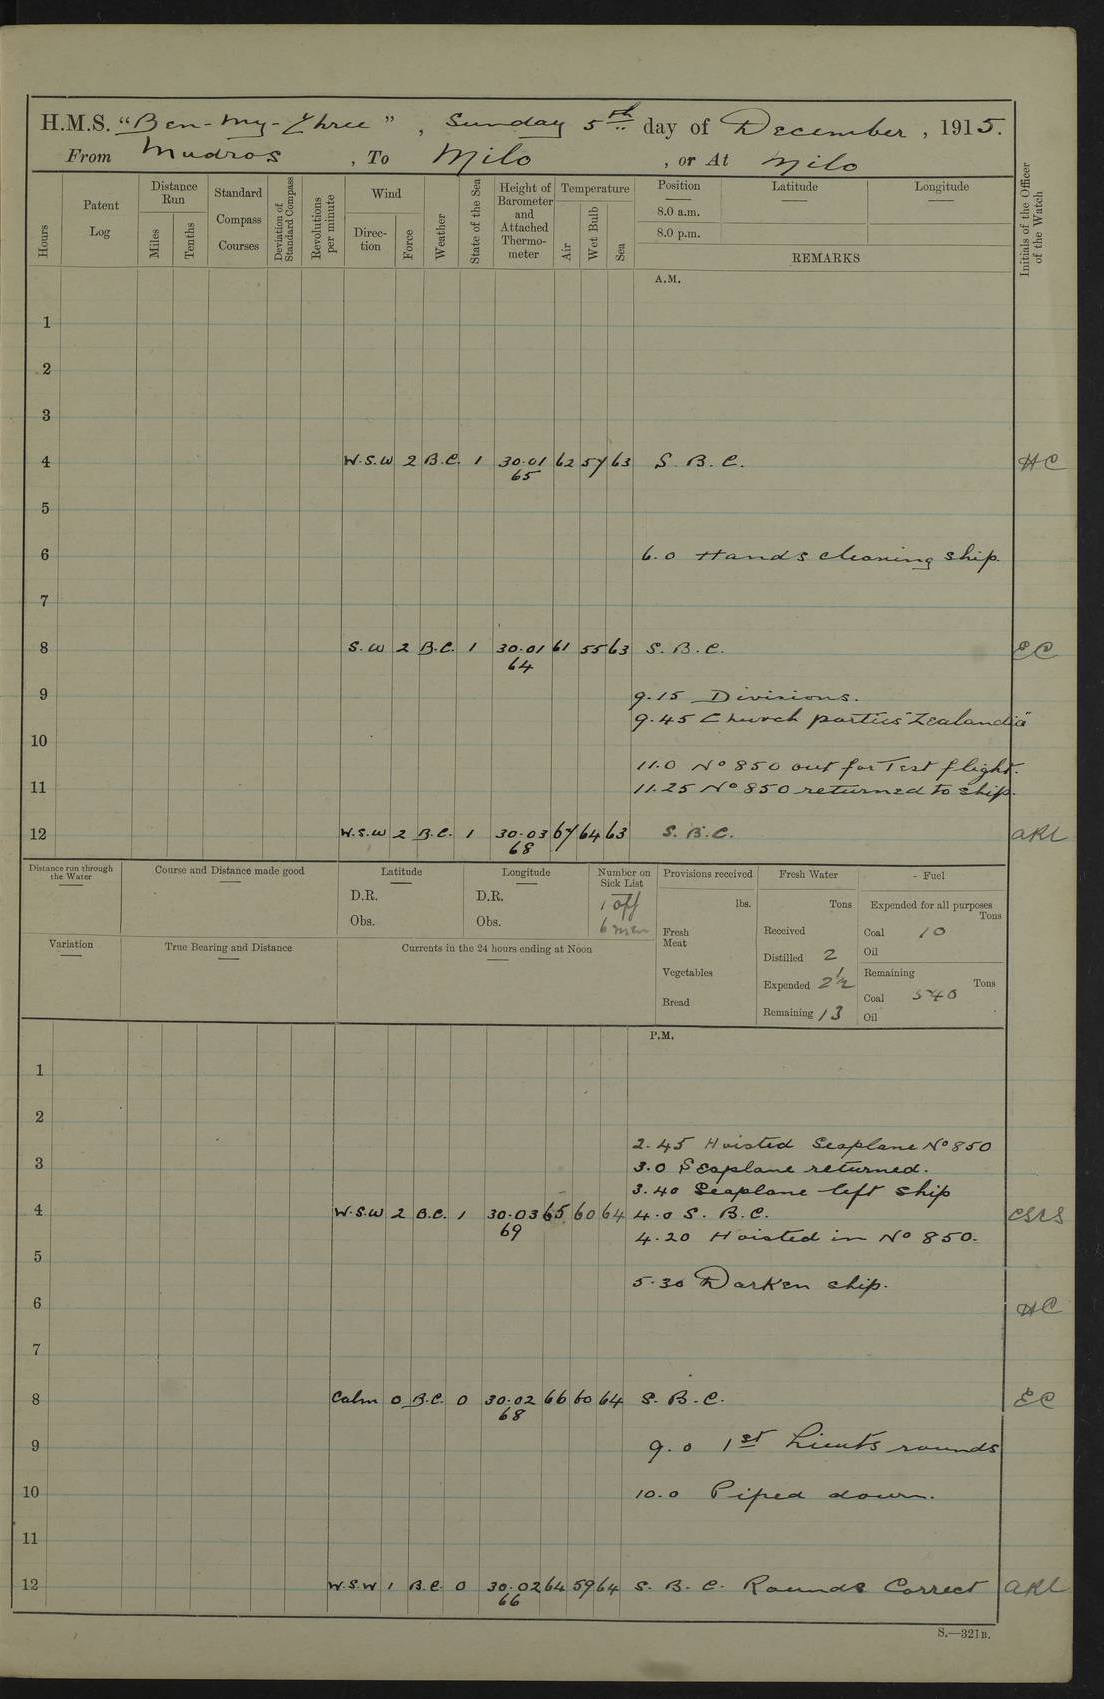 H.M.S. "Ben-my-Chree", Sunday 5th day of December, 1915.
From Mudros, To Milo, or At Milo
Hours
Patent Log
Distance Run
Miles
Tenths
Standard Compass Courses
Deviation of Standard Compass
Revolutions per minute
Wind
Direction
Force
Weather
State of the Sea
Height of Barometer and Attached Thermometer
Temperature
Air
Wet Bulb
Sea
Position
8.0 a.m.
8.0 p.m.
Latitude
Longitude
REMARKS
Initials of the Officer of the Watch
A.M.
1
2
3
4 W.S.W 2 B.C. 1 30.01 62 57 63 S. B. C. HC
65
5
6 6.0 Hands cleaning ship.
7
8 S.W 2 B.C. 1 30.01 61 55 63 S. B. C. EC
64
9 9.15 Divisions.
9.45 Church parties "Zealandia"
10
11.0 No 850 out for Test flight.
11 11.25 No 850 returned to ship.
12 W.S.W 2 B.C. 1 30.03 67 64 63 S. B. C.
68
Distance run through the Water
Course and Distance made good
Latitude
D.R.
Obs.
Longitude
D.R.
Obs.
Number on Sick List
1 off
6 men
Provisions received
lbs.
Fresh Meat
Vegetables
Bread
Fresh Water
Tons
Received
Distilled 2
Expended 2½
Remaining 13
Fuel
Expended for all purposes
Tons
Coal 10
Oil
Remaining
Tons
Coal 540
Oil
Variation
True Bearing and Distance
Currents in the 24 hours ending at Noon
P.M.
1
2
2.45 Hoisted Seaplane No 850
3 3.0 Seaplane returned.
3.40 Seaplane left ship
4 W.S.W 2 B.C. 1 30.03 65 60 64 4.0 S. B. C.
69
4.20 Hoisted in No 850.
5
5.30 Darken ship.
6 HC
7
8 Calm 0 B.C. 0 30.02 66 60 64 S. B. C. EC
68
9 9.0 1st Lieuts rounds
10 10.0 Piped down.
11
12 W.S.W 1 B.C. 0 30.02 64 59 64 S. B. C. Rounds Correct
66
S.—321B.